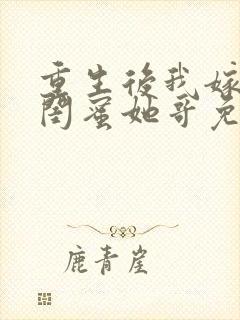 重生後我嫁
閨蜜她哥免
鹿青崖